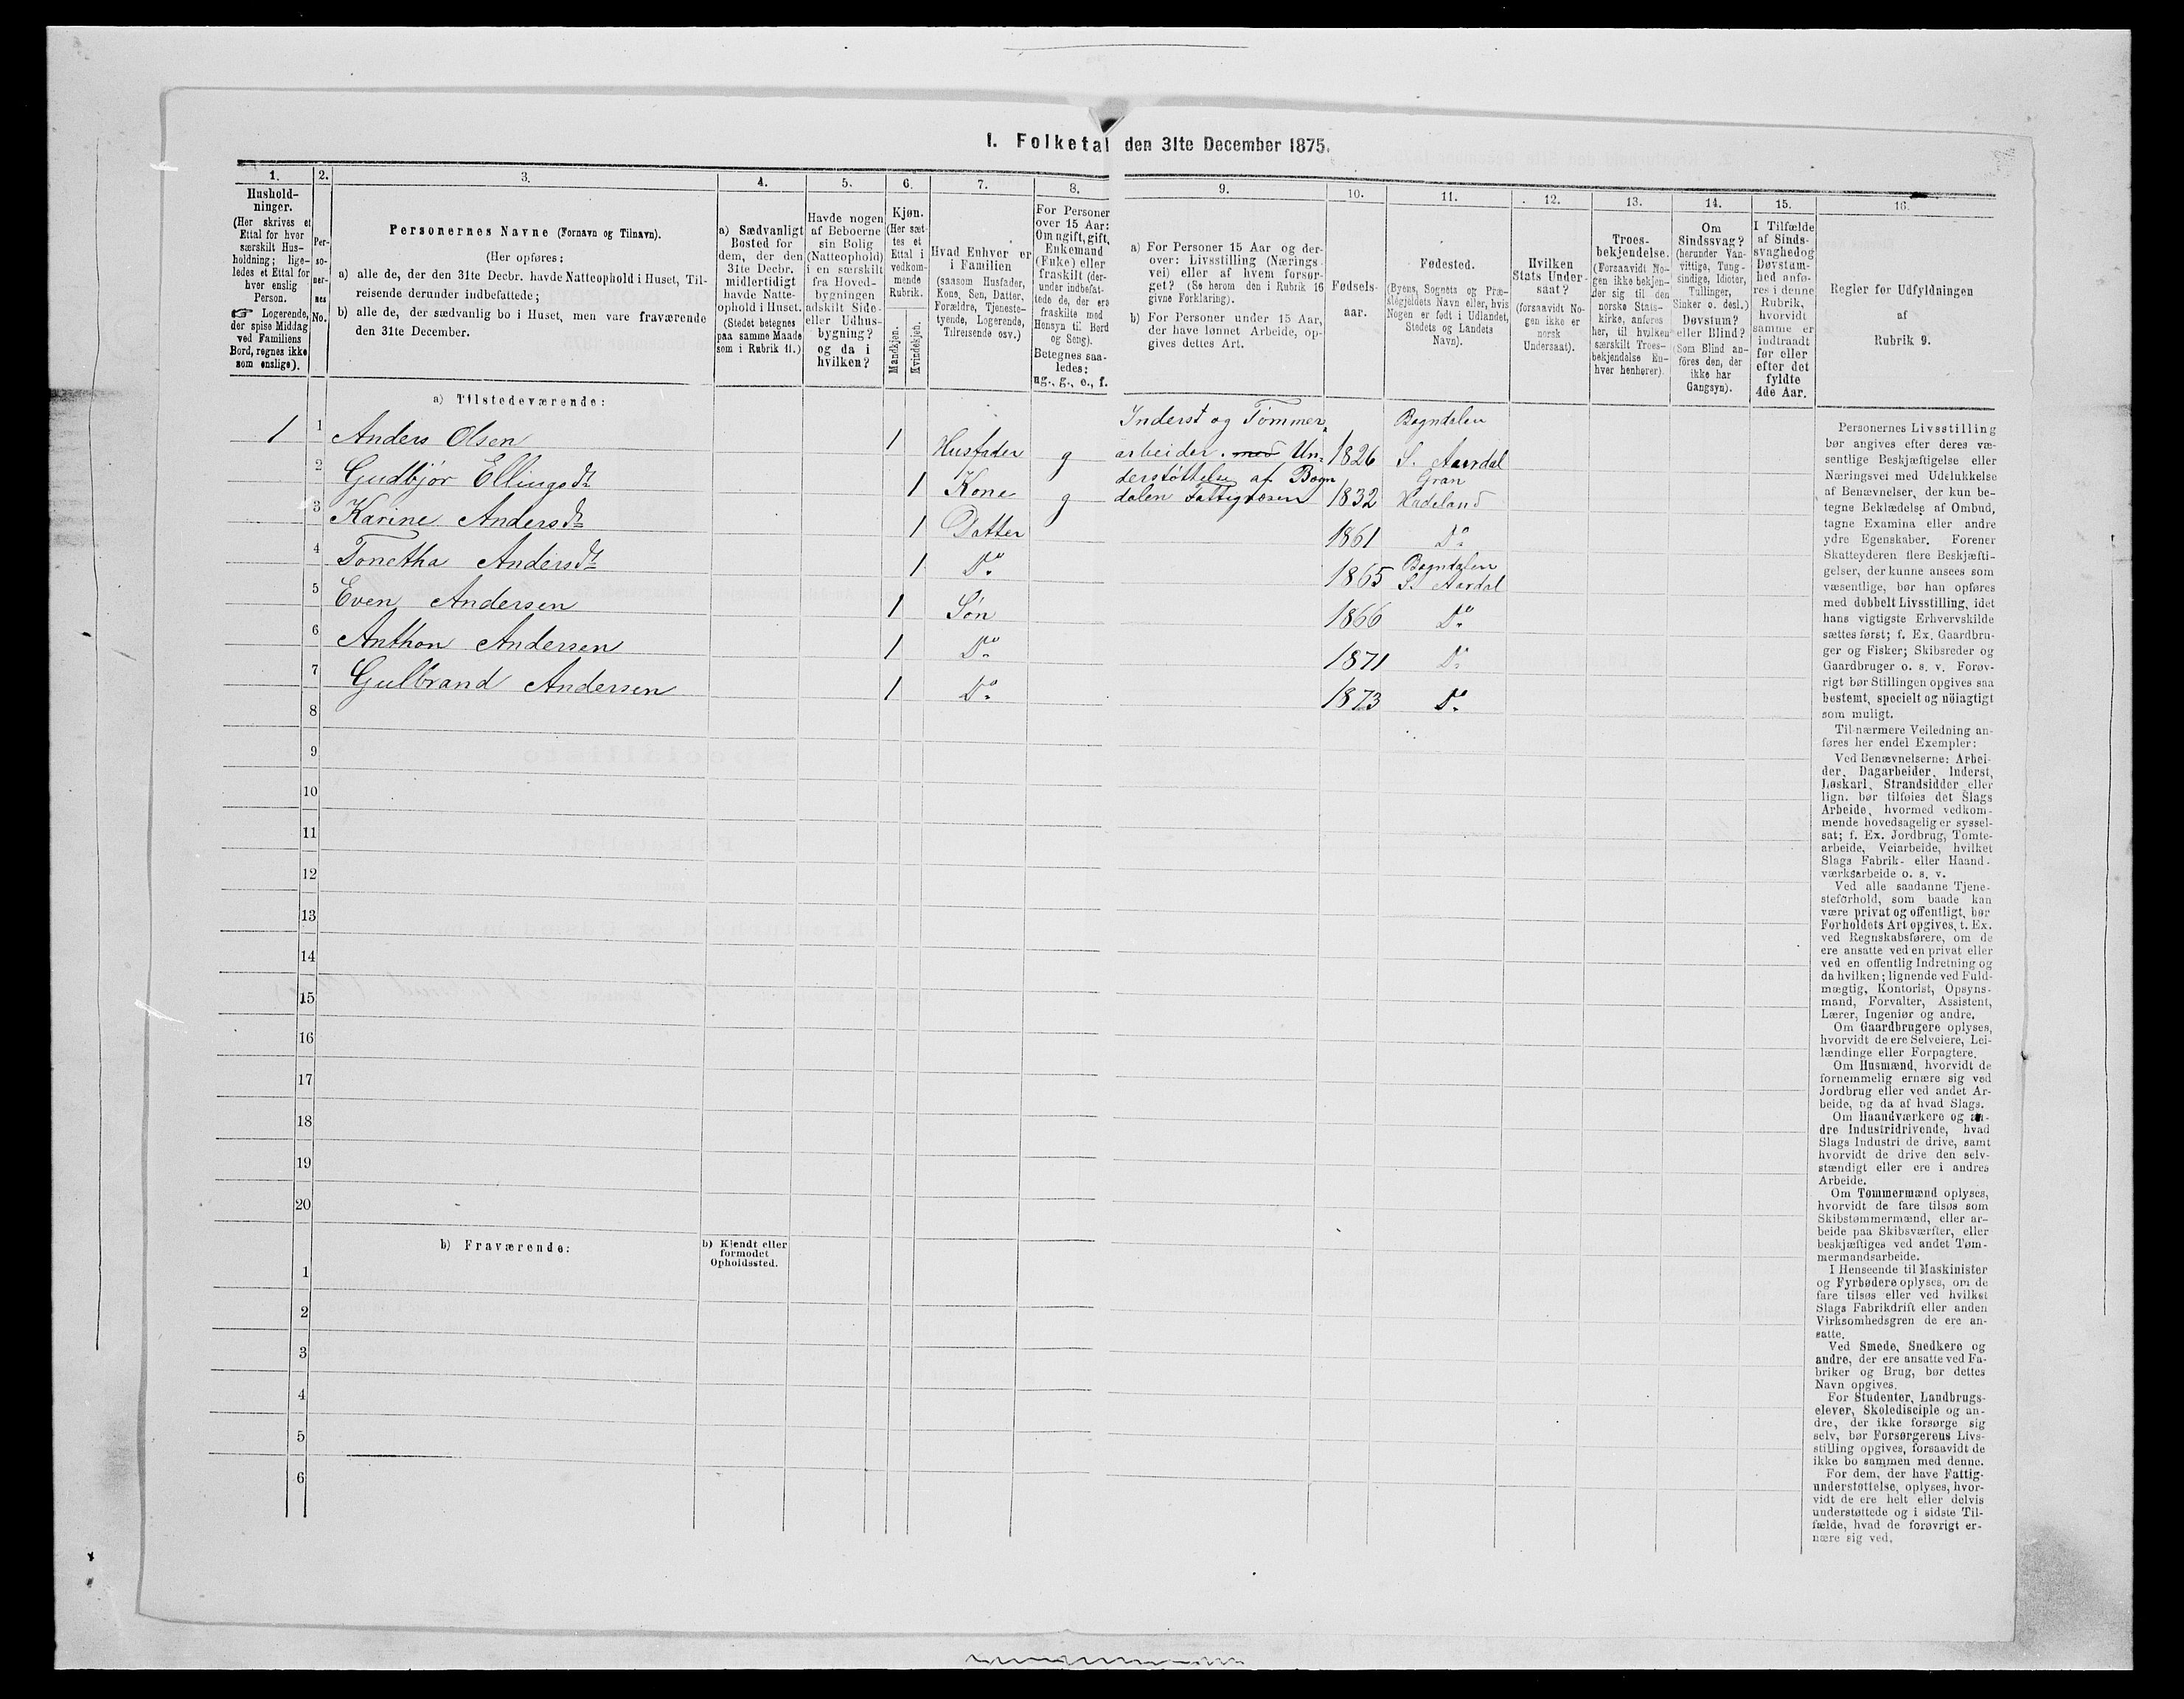 I. Folketal den 31te December 1875.
1.
Hushold-
ninger.
(Her skrives et
Ettal for hver
særskilt Hus-
holdning; lige-
ledes et Ettal for
hver enslig
Person.
☞ Logerende,
der spise Middag
ved Familiens
Bord, regnes ikke
som enslige).
2.
Per-
so-
ner-
nes
No.
3.
Personernes Navne (Fornavn og Tilnavn).
(Her opføres:
a) alle de, der den 31te Decbr. havde Natteophold i Huset, Til-
reisende derunder indbefattede;
b) alle de, der sædvanlig bo i Huset, men vare fraværende
den 31te December.
4.
a) Sædvanligt
Bosted for
dem, der den
31te Decbr.
midlertidigt
havde Natte-
ophold i Huset.
(Stedet betegnes
paa samme Maade
som i Rubrik 11.)
5.
Havde nogen
af Beboerne
sin Bolig
(Natteophold)
i en særskilt
fra Hoved-
bygningen
adskilt Side-
eller Udhus-
bygning?
og da i
hvilken?
6.
Kjøn.
(Her sæt-
tes et
Ettal i
vedkom-
mende
Rubrik.
Mandkjøn.
Kvindekjøn.
7.
Hvad Enhver er
i Familien
(saasom Husfader,
Kone, Søn, Datter,
Forældre, Tjeneste-
tyende, Logerende,
Tilreisende osv.)
8.
For Personer
over 15 Aar:
Om ugift, gift,
Enkemand
(Enke) eller
fraskilt (der-
under indbefat-
tede de, der ere
fraskilte med
Hensyn til Bord
og Seng).
Betegnes saa-
ledes:
ug., g., e., f.
9.
a) For Personer 15 Aar og der-
over: Livsstilling (Nærings-
vei) eller af hvem forsør-
get? (Se herom den i Rubrik 16
givne Forklaring).
b) For Personer under 15 Aar,
der have lønnet Arbeide, op-
gives dettes Art.
10.
Fødsels-
aar.
11.
Fødested.
(Byens, Sognets og Præ-
stegjeldets Navn eller, hvis
Nogen er født i Udlandet,
Stedets og Landets
Navn).
12.
Hvilken
Stats Under-
saat?
(forsaavidt No-
gen ikke er
norsk
Undersaat).
13.
Troes-
bekjendelse.
(Forsaavidt No-
gen ikke bekjen-
der sig til den
norske Stats-
kirke, anføres
her, til hvilken
særskilt Troes-
bekjendelse En-
hver henhører).
14.
Om
Sindssvag?
(herunder Van-
vittige, Tung-
sindige, Idioter,
Tullinger,
Sinker o. desl.)
Døvstum?
eller Blind?
(Som Blind an-
føres den, der
ikke har
Gangsyn).
15.
I Tilfælde
af Sinds-
svaghed og
Døvstum-
hed anfø-
res i denne
Rubrik,
hvorvidt
samme er
indtraadt
før eller
efter det
fyldte
4de Aar.
16.
Regler for Udfyldningen
af
Rubrik 9.
a) Tilstedeværende:
1 1 Anders Olsen 1 Husfader g Inderst og Tømmer
arbeider. med Un- 1826 Bagndalen
S. Aurdal
2 Gudbjør Ellingsdt 1 Kone g derstøttelse af Bagn
dalen Fattigvæsen 1832 Gran
Hadeland
3 Karine Andersdt 1 Datter 1861 Do
4 Tonetha Andersdt 1 Do 1865 Bagndalen
S. Aurdal
5 Even Andersen 1 Søn 1866 Do
6 Anthon Andersen 1 Do 1871 Do
7 Gulbrand Andersen 1 Do 1873 Do
8
9
10
11
12
13
14
15
16
17
18
19
20
b) Fraværende:
b) Kjendt eller
formodet
Opholdssted.
1
2
3
4
5
6
Personernes Livsstilling
bør angives efter deres væ-
sentlige Beskjæftigelse eller
Næringsvei med Udelukkelse
af Benævnelser, der kun be-
tegne Beklædelse af Ombud,
tagne Examina eller andre
ydre Egenskaber. Forener
Skatteyderen flere Beskjæfti-
gelser, der kunne ansees som
væsentlige, bør han opføres
med dobbelt Livsstilling, idet
hans vigtigste Erhvervskilde
sættes først; f. Ex. Gaardbru-
ger og Fisker; Skibsreder og
Gaardbruger o. s. v. Forøv-
rigt bør Stillingen opgives saa
bestemt, specielt og nöiagtigt
som muligt.
Til nærmere Veiledning an-
føres her endel Exempler:
Ved Benævnelserne: Arbei-
der, Dagarbeider, Inderst,
Løskarl, Strandsidder eller
lign. bør tilføies det Slags
Arbeide, hvormed vedkom-
mende hovedsagelig er syssel-
sat; f. Ex. Jordbrug, Tomte-
arbeide, Veiarbeide, hvilket
Slags Fabrik- eller Haand-
værksarbeide o. s. v.
Ved alle saadanne Tjene-
steforhold, som baade kan
være privat og offentligt, bør
Forholdets Art opgives, t. Ex.
ved Regnskabsførere, om de
ere ansatte ved en privat eller
ved en offentlig Indretning og
da hvilken; lignende ved Fuld-
mægtig, Kontorist, Opsyns-
mand, Forvalter, Assistent,
Lærer, Ingeniør og andre.
Om Gaardbrugere oplyses,
hvorvidt de ere Selveiere, Lei-
lændinge eller Forpagtere.
Om Husmænd, hvorvidt de
fornemmelig ernære sig ved
Jordbrug eller ved andet Ar-
beide, og da af hvad Slags.
Om Haandværkere og an-
dre Industridrivende, hvad
Slags Industri de drive, samt
hvorvidt de drive den selv-
stændigt eller ere i andres
Arbeide.
Om Tømmermænd oplyses,
hvorvidt de fare tilsøs som
Skibstømmermænd, eller ar-
beide paa Skibsværfter, eller
beskjæftiges ved andet Tøm-
mermandsarbeide.
I Henseende til Maskinister
og Fyrbødere oplyses, om de
fare tilsøs eller ved hvilket
Slags Fabrikdrift eller anden
Virksomhedsgren de ere an-
satte.
Ved Smede, Snedkere og
andre, der ere ansatte ved Fa-
briker og Brug, bør dettes
Navn opgives.
For Studenter, Landbrugs-
elever, Skoledisciple og an-
dre, der ikke forsørge sig
selv, bør Forsørgerens Livs-
stilling opgives, forsaavidt de
ikke bo sammen med denne.
For dem, der have Fattig-
understøttelse, oplyses, hvor-
vidt de ere helt eller delvis
understøttede og i sidste Til-
fælde, hvad de forøvrigt er-
nære sig ved.